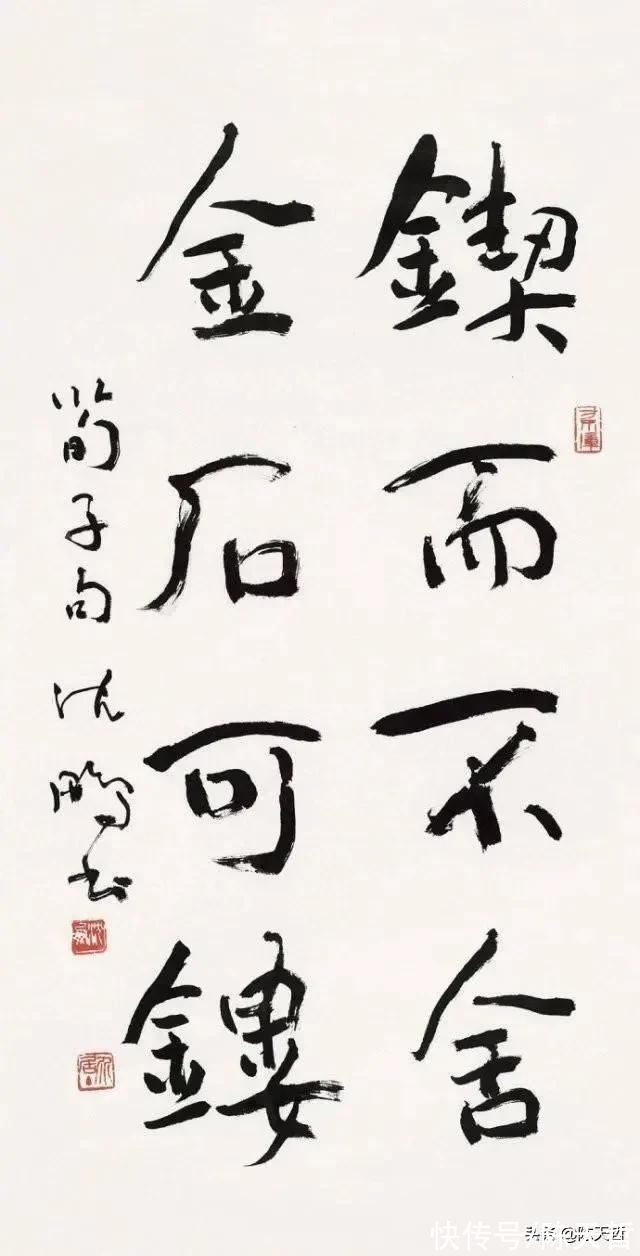 鍥而不舍
金石可鏤
荀子句 沈鹏书
快传号
头条 @陈天哲